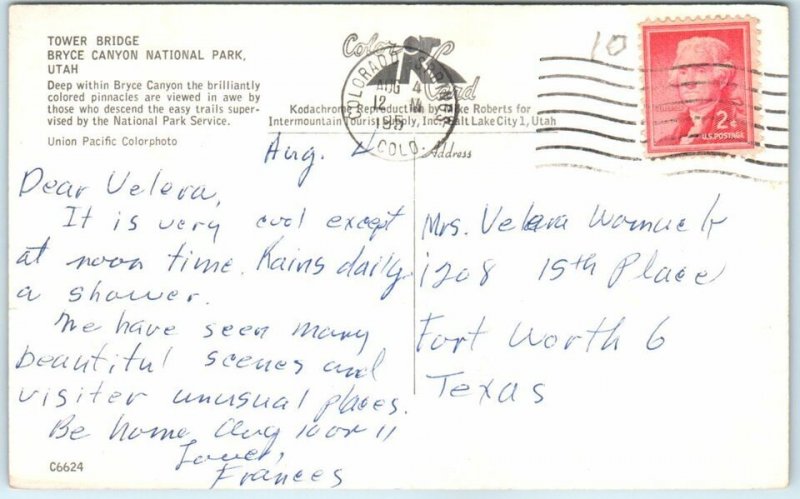 TOWER BRIDGE
BRYCE CANYON NATIONAL PARK,
UTAH
Deep within Bryce Canyon the brilliantly
colored pinnacles are viewed in awe by
those who descend the easy trails super-
vised by the National Park Service.
Union Pacific Colorphoto
Color Card
Kodachrome Reproduction by Mike Roberts for
Intermountain Tourist Supply, Inc. Salt Lake City 1, Utah
Address
COLORADO SPRINGS
AUG 4
12 M
195
COLO.
10
2¢
U.S. POSTAGE
Aug. 4
Dear Velera,
It is very cool except
at noon time. Rains daily
a shower.
We have seen many
beautiful scenes and
visiter unusual places.
Be home Aug 10 or 11
Love,
Frances
Mrs. Velera Womack
1208 15th Place
Fort Worth 6
Texas
C6624